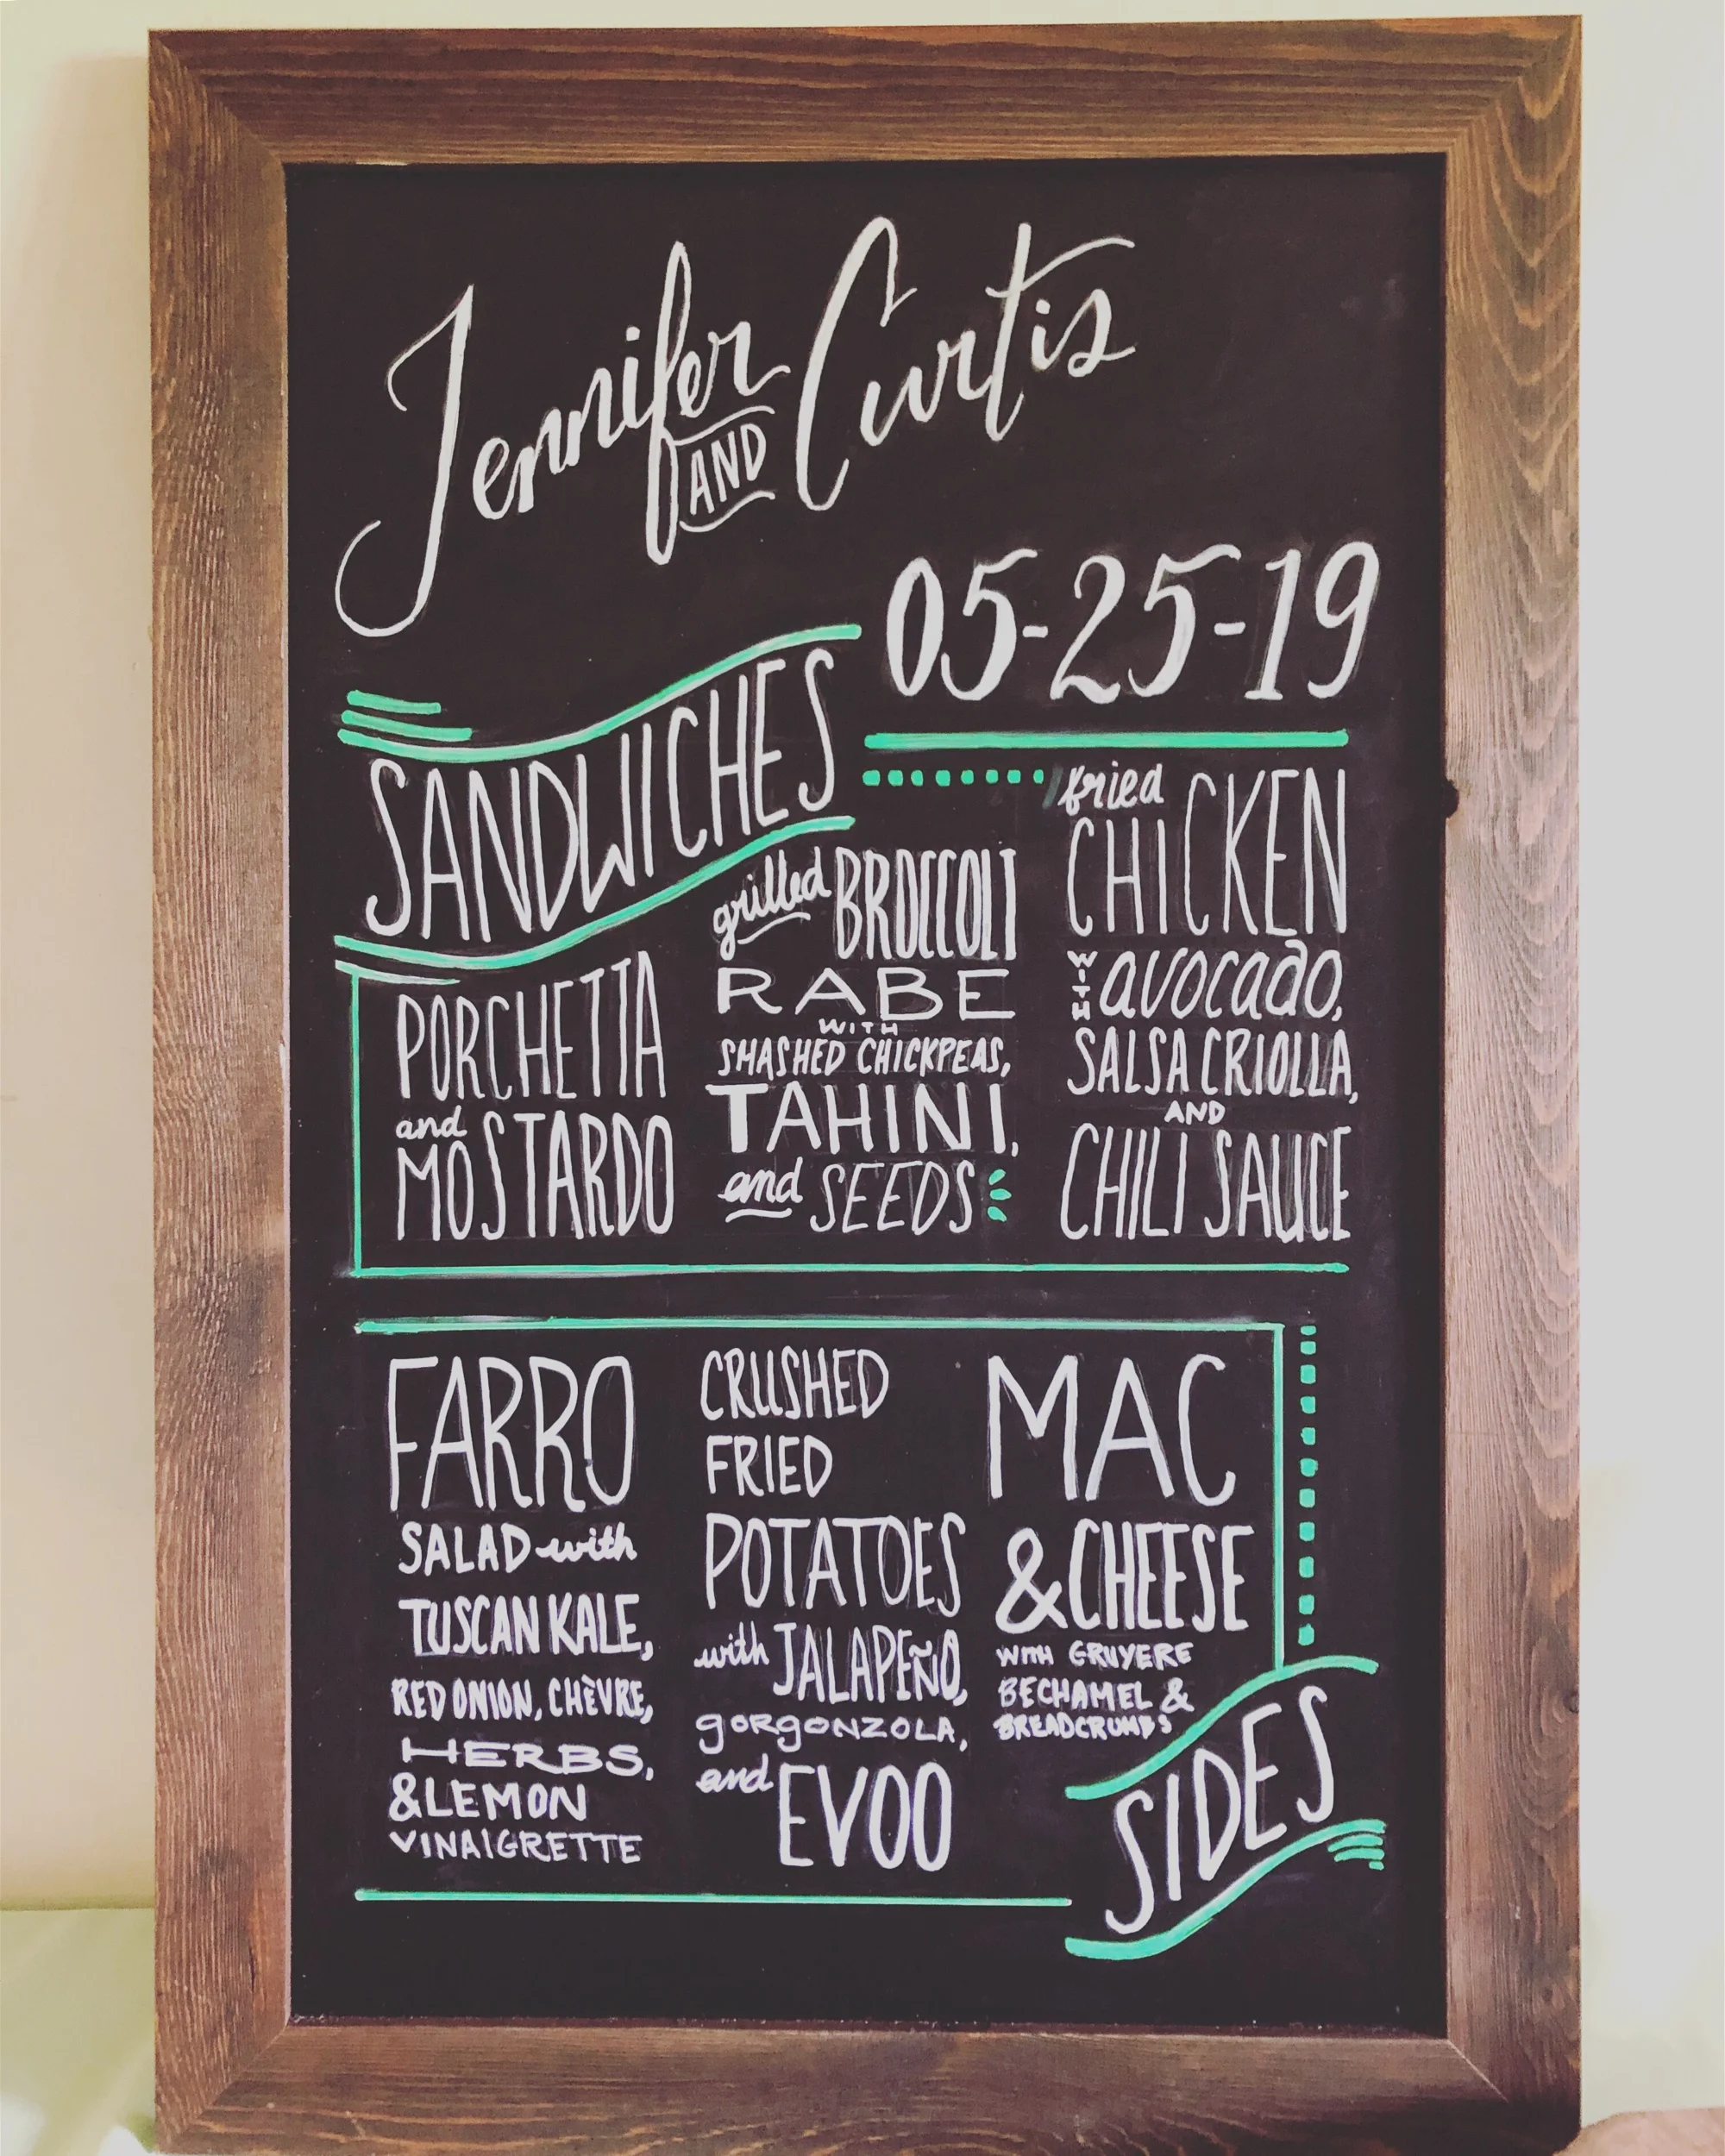 Jennifer
AND
Curtis
05-25-19
SANDWICHES
PORCHETTA
and
MOSTARDO
grilled BROCCOLI
RABE
WITH
SMASHED CHICKPEAS,
TAHINI,
and SEEDS
fried
CHICKEN
WITH avocado,
SALSA CRIOLLA,
AND
CHILI SAUCE
FARRO
SALAD with
TUSCAN KALE,
RED ONION, CHÈVRE,
HERBS,
& LEMON
VINAIGRETTE
CRUSHED
FRIED
POTATOES
with JALAPEÑO,
gORgONZOLA,
and EVOO
MAC
& CHEESE
WITH GRUYERE
BECHAMEL &
BREADCRUMBS
SIDES